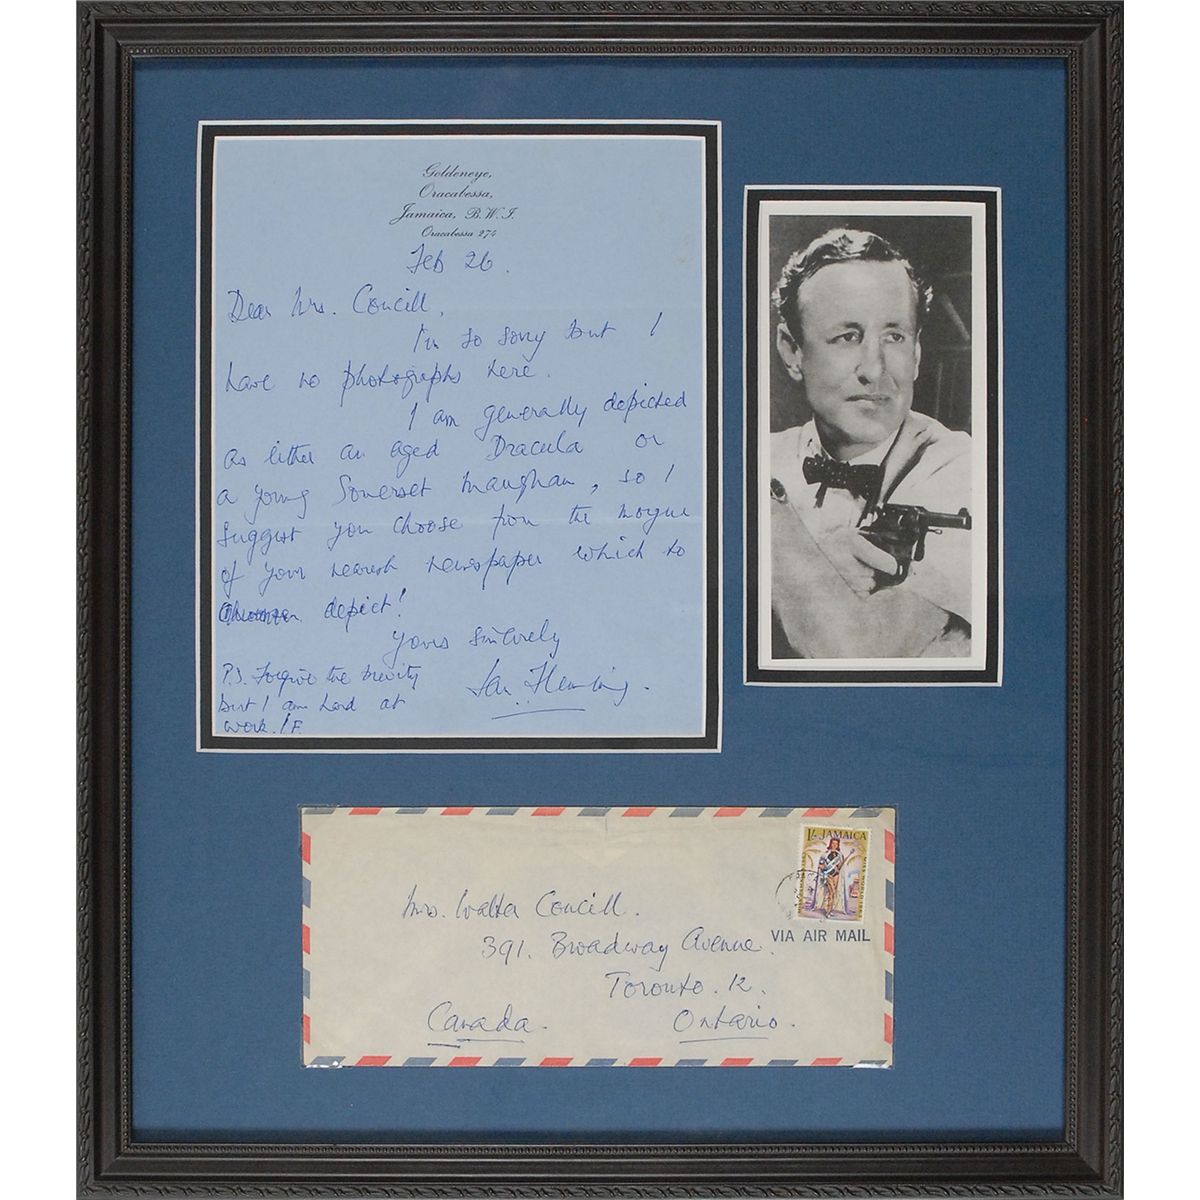 Goldeneye,
Oracabessa,
Jamaica, B.W.I.
Oracabessa 274
Feb 26.
Dear Mrs. Concill,
I'm so sorry but I
have no photographs here.
I am generally depicted
as either an aged Dracula or
a young Somerset Maugham, so I
suggest you choose from the morgue
of your nearest newspaper which to
depict!
Yours sincerely
Ian Fleming.
P.S. Forgive the brevity
but I am hard at
work. IF.
1/- JAMAICA
MISS WORLD 1963
VIA AIR MAIL
Mrs. Walter Concill.
391. Broadway Avenue.
Toronto. 12.
Canada. Ontario.